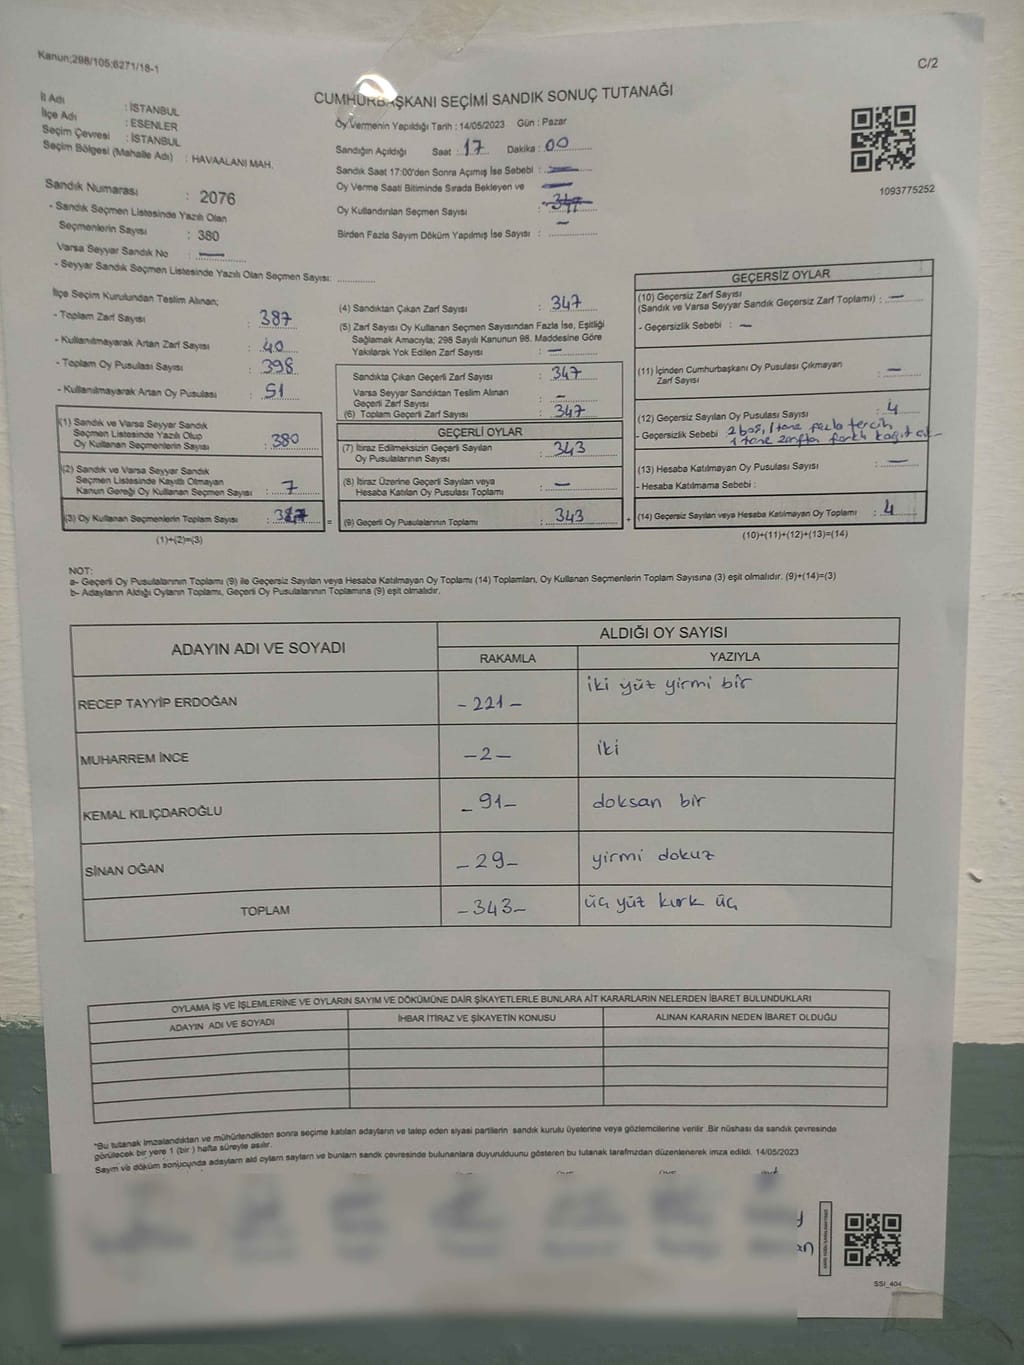 Kanun;298/105;6271/18-1
C/2
İl Adı : İSTANBUL
İlçe Adı : ESENLER
Seçim Çevresi : İSTANBUL
Seçim Bölgesi (Mahalle Adı) : HAVAALANI MAH.
CUMHURBAŞKANI SEÇİMİ SANDIK SONUÇ TUTANAĞI
Oy Vermenin Yapıldığı Tarih : 14/05/2023 Gün : Pazar
Sandığın Açıldığı Saat : 17 Dakika : 00
Sandık Saat 17:00'den Sonra Açımış İse Sebebi : —
Oy Verme Saati Bitiminde Sırada Bekleyen ve —
Oy Kullandırılan Seçmen Sayısı :
Birden Fazla Sayım Döküm Yapılmış İse Sayısı : —
1093775252
Sandık Numarası : 2076
- Sandık Seçmen Listesinde Yazılı Olan
Seçmenlerin Sayısı : 380
Varsa Seyyar Sandık No : —
- Seyyar Sandık Seçmen Listesinde Yazılı Olan Seçmen Sayısı:
İlçe Seçim Kurulundan Teslim Alınan;
- Toplam Zarf Sayısı : 387
- Kullanılmayarak Artan Zarf Sayısı : 40
- Toplam Oy Pusulası Sayısı : 398
- Kullanılmayarak Artan Oy Pusulası : 51
(1) Sandık ve Varsa Seyyar Sandık
Seçmen Listesinde Yazılı Olup
Oy Kullanan Seçmenlerin Sayısı : 380
(2) Sandık ve Varsa Seyyar Sandık
Seçmen Listesinde Kayıtlı Olmayan
Kanun Gereği Oy Kullanan Seçmen Sayısı : 7
(3) Oy Kullanan Seçmenlerin Toplam Sayısı :
(1)+(2)=(3)
(4) Sandıktan Çıkan Zarf Sayısı : 347
(5) Zarf Sayısı Oy Kullanan Seçmen Sayısından Fazla İse, Eşitliği
Sağlamak Amacıyla; 298 Sayılı Kanunun 98. Maddesine Göre
Yakılarak Yok Edilen Zarf Sayısı : —
Sandıkta Çıkan Geçerli Zarf Sayısı : 347
Varsa Seyyar Sandıktan Teslim Alınan
Geçerli Zarf Sayısı : —
(6) Toplam Geçerli Zarf Sayısı : 347
GEÇERLİ OYLAR
(7) İtiraz Edilmeksizin Geçerli Sayılan
Oy Pusulalarının Sayısı : 343
(8) İtiraz Üzerine Geçerli Sayılan veya
Hesaba Katılan Oy Pusulası Toplamı : —
= (9) Geçerli Oy Pusulalarının Toplamı : 343 +
GEÇERSİZ OYLAR
(10) Geçersiz Zarf Sayısı
(Sandık ve Varsa Seyyar Sandık Geçersiz Zarf Toplamı) : —
- Geçersizlik Sebebi : —
(11) İçinden Cumhurbaşkanı Oy Pusulası Çıkmayan
Zarf Sayısı : —
(12) Geçersiz Sayılan Oy Pusulası Sayısı : 4
- Geçersizlik Sebebi 2 boş, 1 tane fazla tercih
1 tane zarftan farklı kağıt
(13) Hesaba Katılmayan Oy Pusulası Sayısı : —
- Hesaba Katılmama Sebebi :
(14) Geçersiz Sayılan veya Hesaba Katılmayan Oy Toplamı : 4
(10)+(11)+(12)+(13)=(14)
NOT:
a- Geçerli Oy Pusulalarının Toplamı (9) ile Geçersiz Sayılan veya Hesaba Katılmayan Oy Toplamı (14) Toplamları, Oy Kullanan Seçmenlerin Toplam Sayısına (3) eşit olmalıdır. (9)+(14)=(3)
b- Adayların Aldığı Oyların Toplamı, Geçerli Oy Pusulalarının Toplamına (9) eşit olmalıdır.
ADAYIN ADI VE SOYADI
ALDIĞI OY SAYISI
RAKAMLA YAZIYLA
RECEP TAYYİP ERDOĞAN - 221 - iki yüz yirmi bir
MUHARREM İNCE - 2 - iki
KEMAL KILIÇDAROĞLU - 91 - doksan bir
SİNAN OĞAN - 29 - yirmi dokuz
TOPLAM - 343 - üç yüz kırk üç
OYLAMA İŞ VE İŞLEMLERİNE VE OYLARIN SAYIM VE DÖKÜMÜNE DAİR ŞİKAYETLERLE BUNLARA AİT KARARLARIN NELERDEN İBARET BULUNDUKLARI
ADAYIN ADI VE SOYADI İHBAR İTİRAZ VE ŞİKAYETİN KONUSU ALINAN KARARIN NEDEN İBARET OLDUĞU
*Bu tutanak imzalandıktan ve mühürlendikten sonra seçime katılan adayların ve talep eden siyasi partilerin sandık kurulu üyelerine veya gözlemcilerine verilir .Bir nüshası da sandık çevresinde
görülecek bir yere 1 (bir ) hafta süreyle asılır.
Sayım ve döküm sonucunda adayların ald oyların sayıları ve bunların sandık çevresinde bulunanlara duyurulduunu gösteren bu tutanak tarafmzdan düzenlenerek imza edildi. 14/05/2023
SSI_404